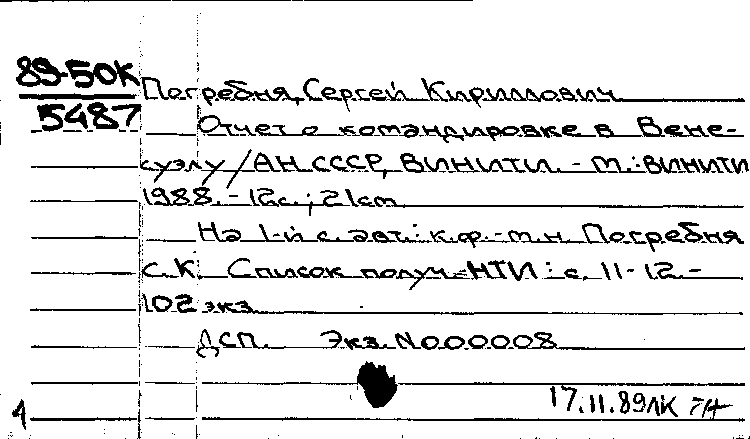 89-50К
5487
Погребня, Сергей Кириллович
Отчет о командировке в Вене-
суэлу / АН СССР, ВИНИТИ. - М.: ВИНИТИ
1988. - 12с.; 21см
На 1-й с. авт.: к.ф.-м.н. Погребня
С.К. Список получ. НТИ: с. 11-12. -
102 экз.
ДСП. Экз. N000008
17.11.89 ЛК
4